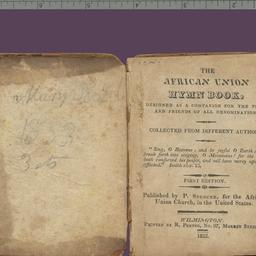 Mary
THE
AFRICAN UNION
HYMN BOOK,
DESIGNED AS A COMPANION FOR THE
AND FRIENDS OF ALL DENOMINATION
COLLECTED FROM DIFFERENT AUTHOR
"Sing, O Heavens; and be joyful O Earth; a
break forth into singing, O Mountains! for the
hath comforted his people, and will have mercy upon
afflicted." Isaiah
FIRST EDITION.
Published by P. Spencer, for the Afri
Union Church, in the United States.
WILMINGTON:
Printed by R. Porter, No. 97, Market Stre
1822.